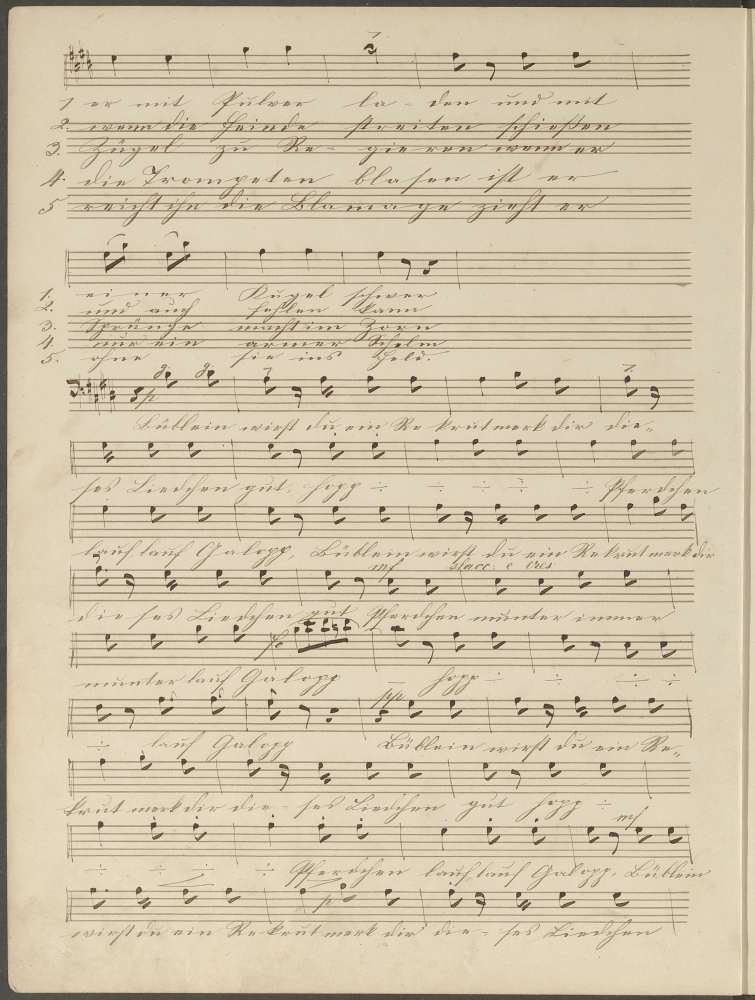 1 er mit Pulver la - den und mit
2. wenn die Feinde streiten schießen
3. Zügel zu Re - gieren wenn er
4. die Trompeten blasen ist er
5 reicht ihn die Blamage zieht er
1. einer Kugel schwer
2. und auch fehlen kann
3. Sprünge macht im Zorn
4. nur ein armer Schelm
5. ohne sie ins Feld.
p
Büblein wirst du ein Rekrut merk dir die=
ses Liedchen gut, hopp ÷ ÷ ÷ ÷ ÷ Pferdchen
lauf lauf Galopp, Büblein wirst du ein Rekrut merk dir
mf stacc: e cres
die ses Liedchen gut Pferdchen munter immer
munter lauf Galopp hopp ÷ ÷ ÷ ÷
pp
÷ lauf Galopp Büblein wirst du ein Re=
krut merk dir die - ses Liedchen gut hopp ÷
mf
÷ ÷ ÷ ÷ Pferdchen lauf lauf Galopp, Büblein
p
wirst du ein Rekrut merk dir die - ses Liedchen